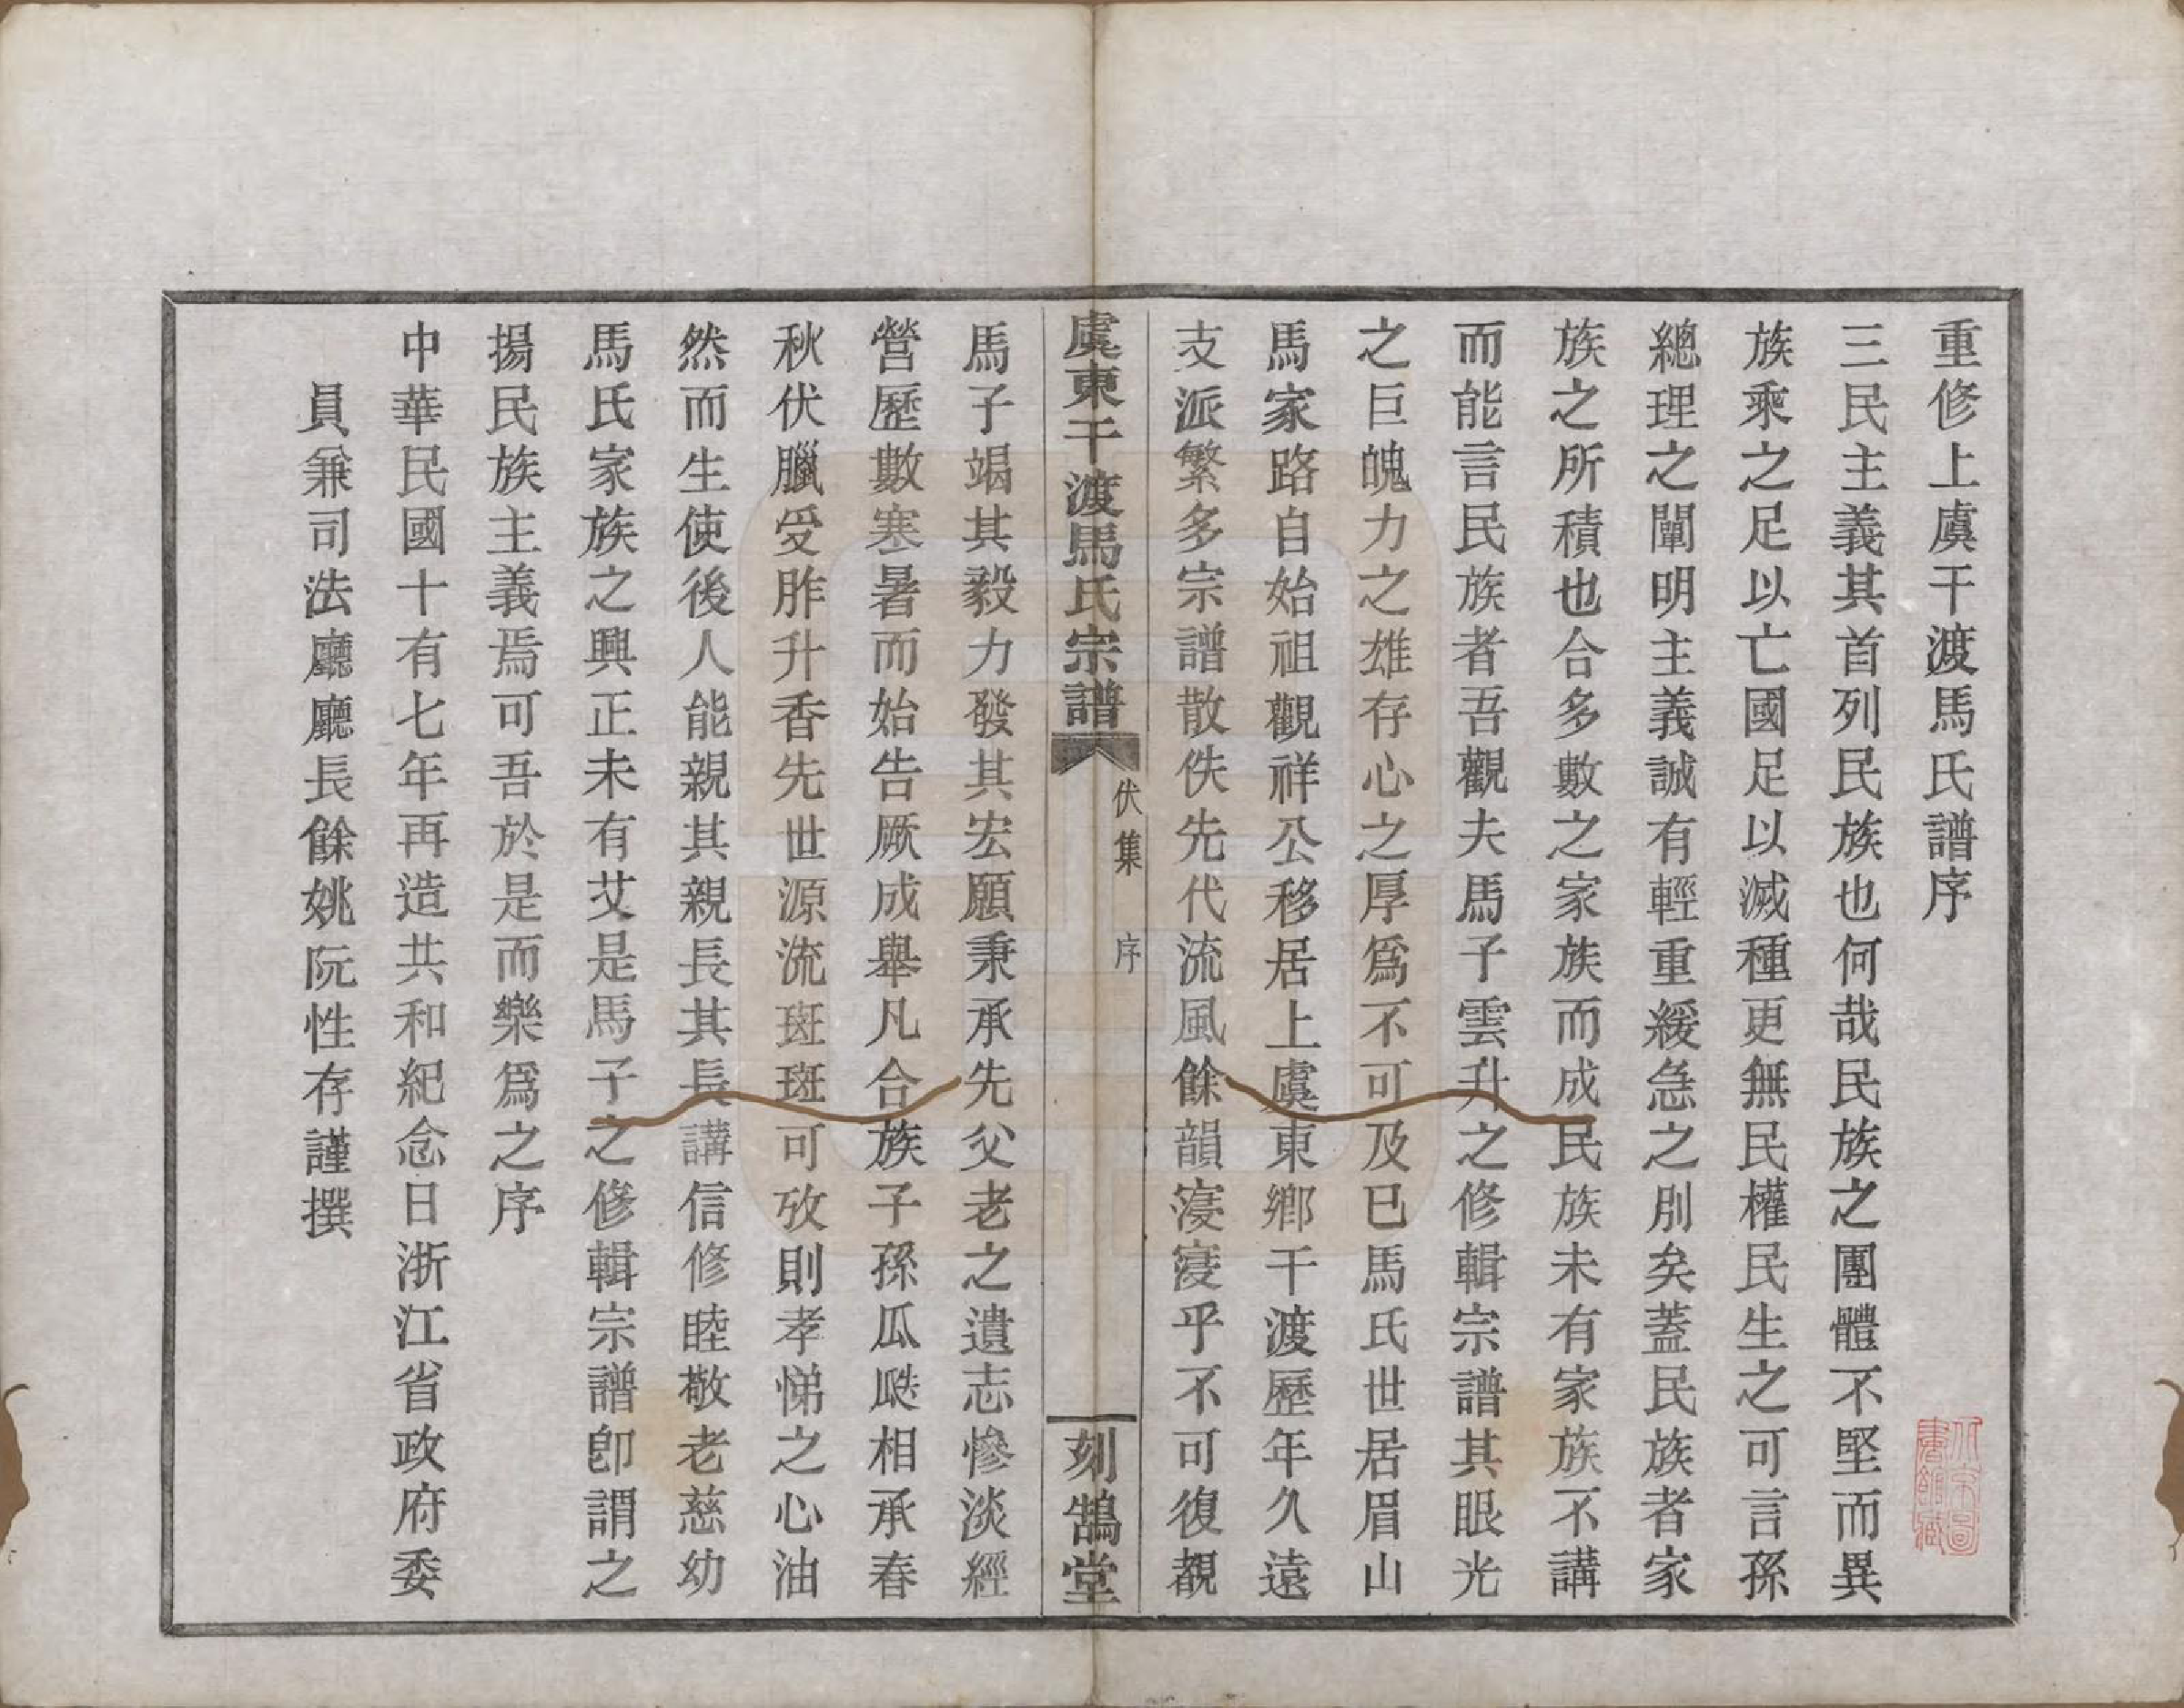 重修上虞干渡馬氏譜序
三民主義其首列民族也何哉民族之團體不堅而異
族乘之足以亡國足以滅種更無民權民生之可言孫
總理之闡明主義誠有輕重緩急之別矣蓋民族者家
族之所積也合多數之家族而成民族未有家族不講
而能言民族者吾觀夫馬子雲升之修輯宗譜其眼光
之巨魄力之雄存心之厚爲不可及已馬氏世居眉山
馬家路自始祖觀祥公移居上虞東鄉干渡歷年久遠
支派繁多宗譜散佚先代流風餘韻寖寖乎不可復覩
虞東干渡馬氏宗譜
伏集 序
刻鵠堂
馬子竭其毅力發其宏願秉承先父老之遺志慘淡經
營歷數寒暑而始告厥成舉凡合族子孫瓜瓞相承春
秋伏臘受胙升香先世源流斑斑可攷則孝悌之心油
然而生使後人能親其親長其長講信修睦敬老慈幼
馬氏家族之興正未有艾是馬子之修輯宗譜卽謂之
揚民族主義焉可吾於是而樂爲之序
中華民國十有七年再造共和紀念日浙江省政府委
員兼司法廳廳長餘姚阮性存謹撰